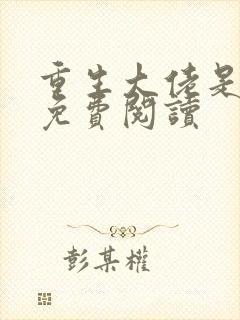 重生大佬是
免費閱讀
彭某權